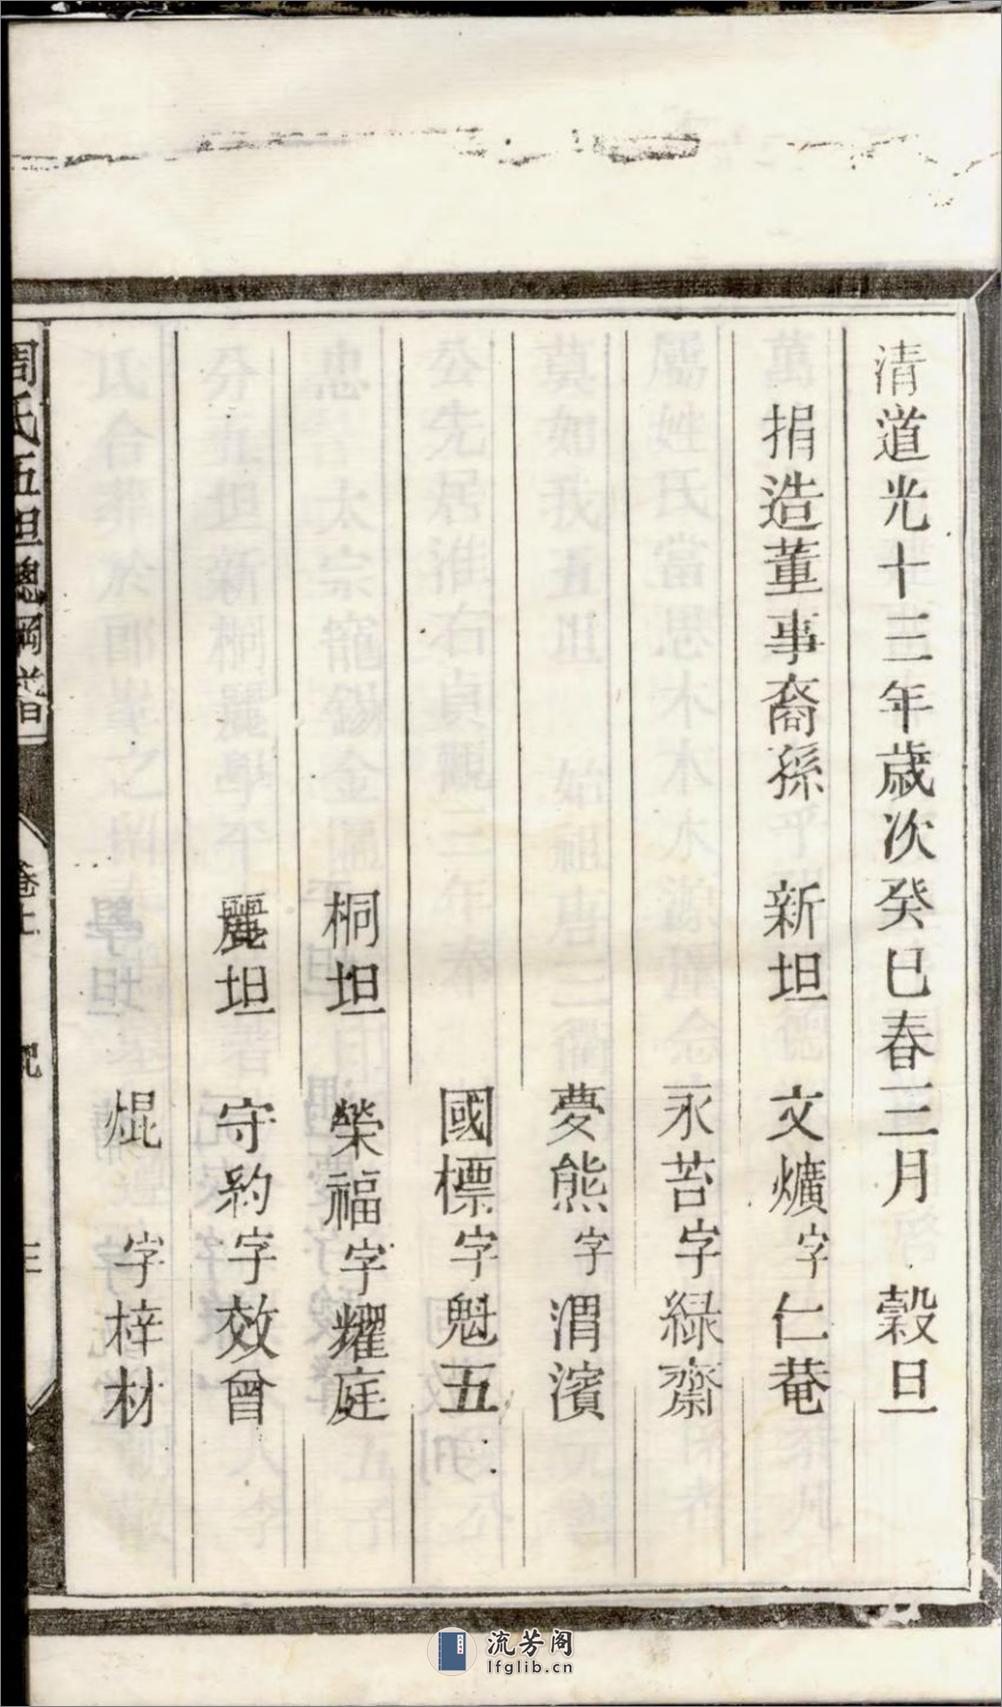 清道光十三年歲次癸巳春三月 穀旦
捐造董事裔孫 新坦 文爌字仁菴
永苔字緑齋
夢熊字渭濱
國標字魁五
桐坦 榮福字耀庭
麗坦 守約字效曾
焜 字梓材
周氏五坦總綱譜 卷上 三
流芳阁
lfglib.cn